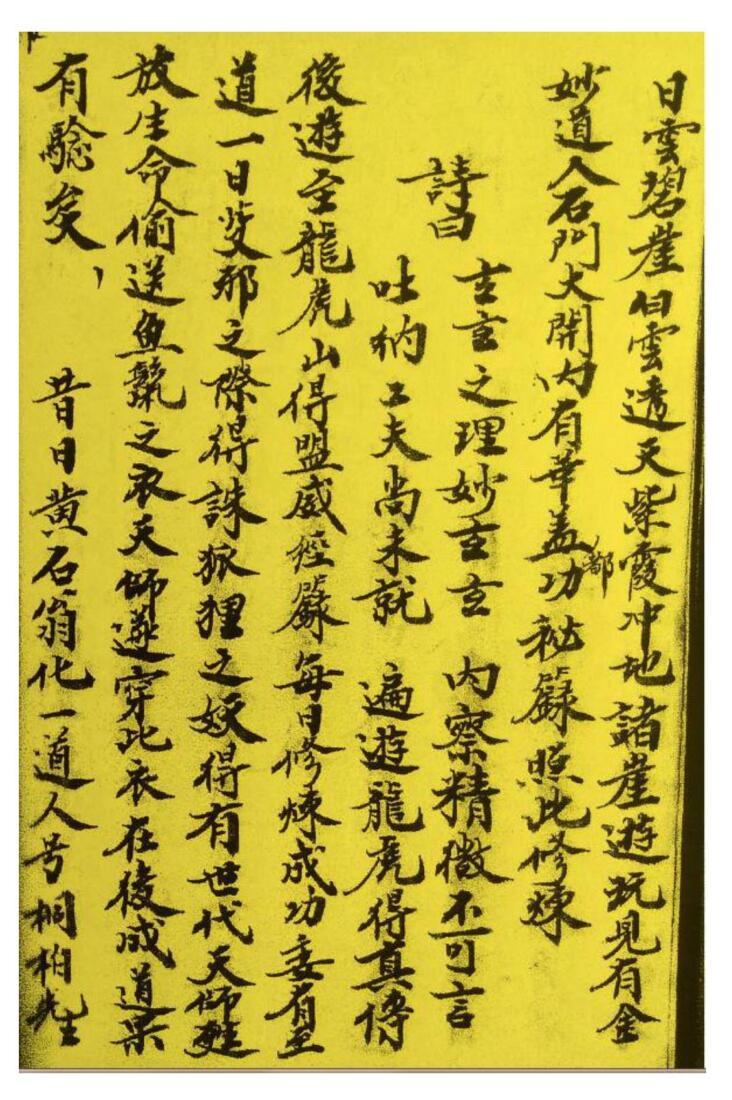 日雲碧崖白雲透天紫霞冲地諸崖遊玩見有金
妙道人石門大開内有華蓋功都秘籙照此修煉
詩曰
玄玄之理妙玄玄 内察精微不可言
吐納工夫尚未就 遍遊龍虎得真傳
後遊至龍虎山得盟威經籙每日修煉成功委有至
道一日茇邪之際得誅狐狸之妖得有世代天師甦
放生命偷送魚鬣之衣天師遂穿此衣在後成道果
有驗矣 昔日黄石翁化一道人号桐柏先生